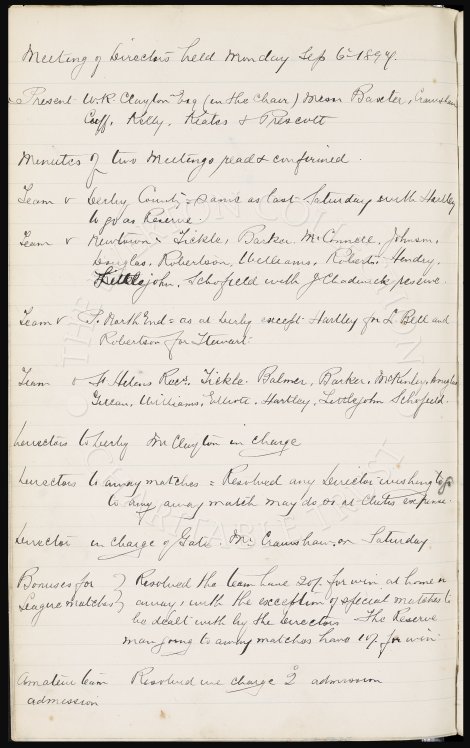 Meeting of Directors held Monday Sep 6th 1897.
Present W.R. Clayton Esq (in the Chair) Messrs Baxter, Crawshaw
Cuff, Kelly, Keates & Prescott
Minutes of two Meetings read & confirmed.
Team v Derby County = Same as last Saturday with Hartley
to go as Reserve.
Team v Newtown = Tickle, Barker, McConnell, Johnson,
Douglas, Robertson, Williams, Robertson, Hendry,
Littlejohn, Schofield with J Chadwick reserve.
Team v P. North End = as at Derby except Hartley for L Bell and
Robertson for Stewart.
Team v St Helens Recs. Tickle. Balmer, Barker, McKinley, Douglas
Gillan, Williams, Elliott, Hartley, Littlejohn Schofield.
Directors to Derby Mr Clayton in charge
Directors to away matches = Resolved any Director wishing to go
to any away match may do so at Clubs expense.
Director in charge of Gate. Mr Crawshaw on Saturday
Bonuses for } Resolved the team have 20/- for win at home or
League matches } away, with the exception of special matches to
be dealt with by the Directors The Reserve
man going to away matches have 10/- for win.
Amateur team Resolved we charge 2d admission
admission